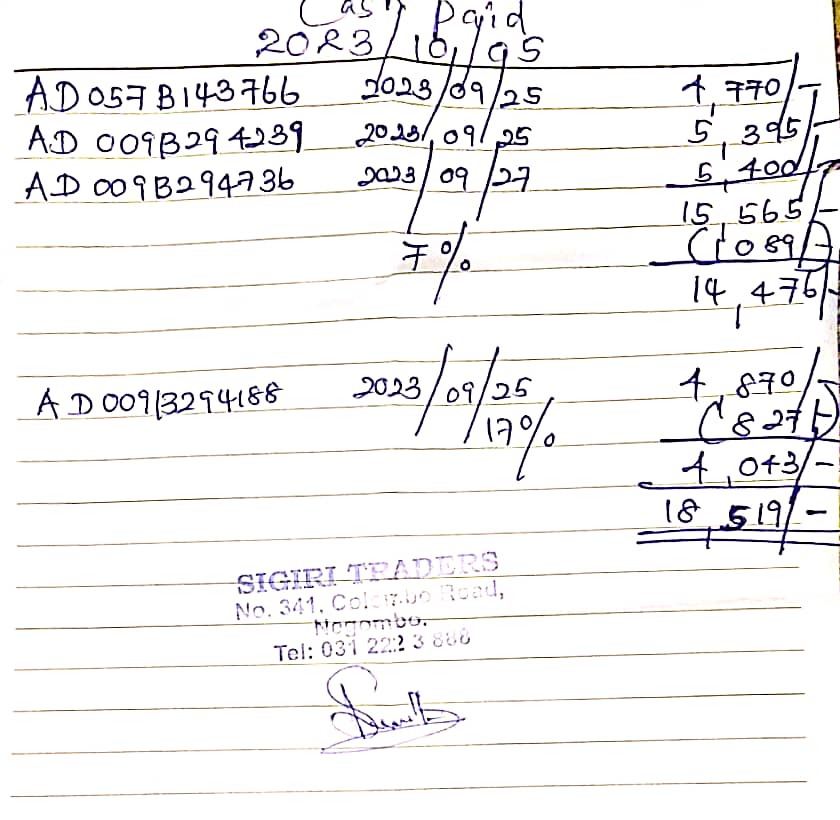 Cash Paid
2023/10/05
AD 057B143766 2023/09/25 4,770/-
AD 009B294239 2023/09/25 5,395/-
AD 009B294736 2023/09/27 5,400/-
15,565/-
7% (1089/-)
14,476/-
AD 009B294188 2023/09/25 4,870/-
17% (827/-)
4,043/-
18,519/-
SIGIRI TRADERS
No. 341, Colombo Road,
Negombo.
Tel: 031 222 3 888